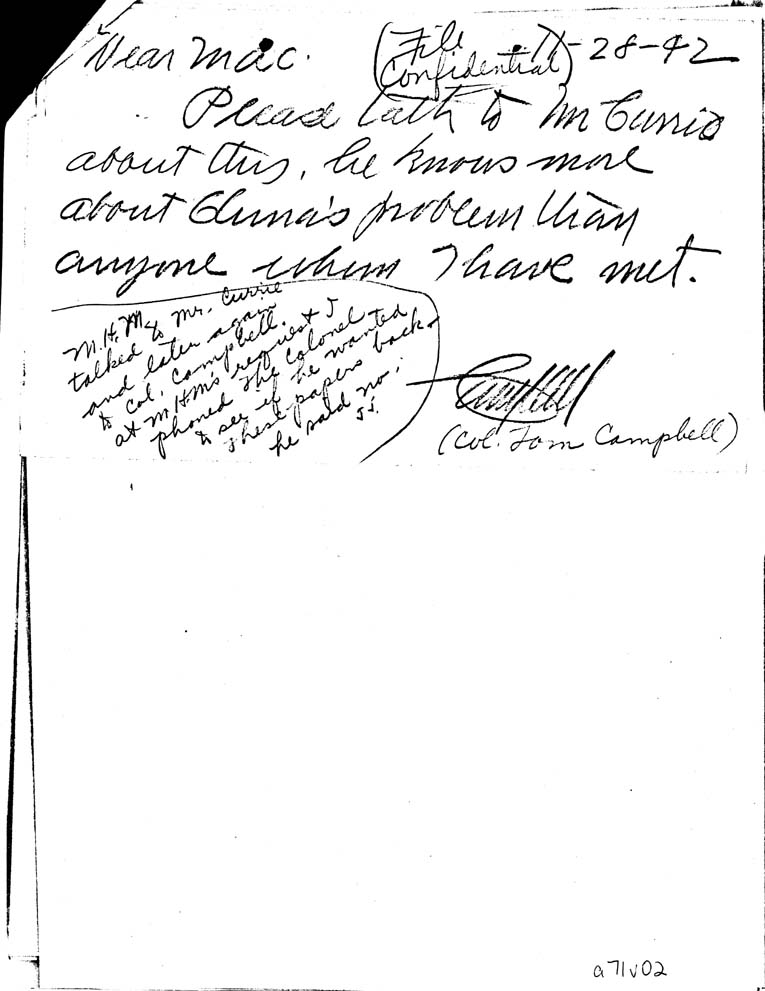 Dear Mac.
(File Confidential)
11-28-42
Please talk to Mr Currie
about this, he knows more
about China's problem than
anyone whom I have met.
Campbell
(Col. Tom Campbell)
M.H.M. talked to Mr. Currie
and later again
to Col. Campbell.
at MHM's request I
phoned the Colonel
to see if he wanted
these papers back-
he said no;
JJ.
a71v02